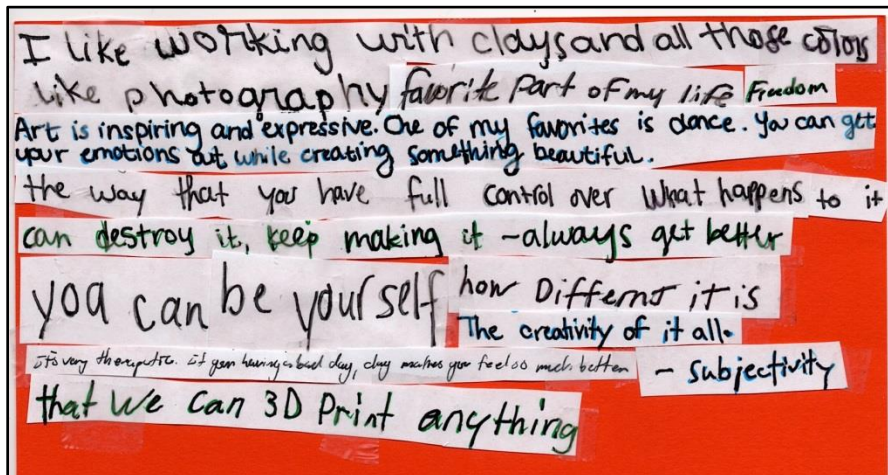 I like working with clays and all those colors
like photography favorite Part of my life Freedom
Art is inspiring and expressive. One of my favorites is dance. You can get
your emotions out while creating something beautiful.
the way that you have full control over What happens to it
can destroy it, keep making it - always get better
you can be yourself how Differnt it is
The creativity of it all.
it's very therapeutic. if your having a bad day, clay makes you feel so much better
- subjectivity
that We can 3D Print anything